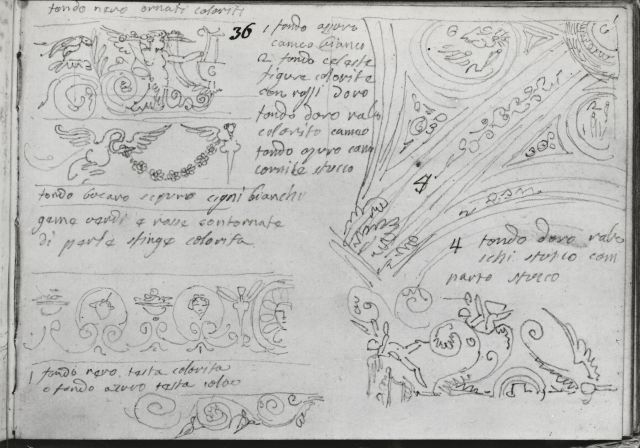 fondo nero ornati coloriti
36
1 fondo azuro
cameo bianco
2 fondo celeste
figure colorite
con rossi doro
fondo doro rabs
colorito cameo
fondo azuro cam
cornise stucco
fondo scuro cigni bianchi
geme verdi e rosse contornate
di perle sfinge colorita
1 fondo nero, testa colorita
o fondo azuro testa
4
4 fondo doro rabe
ischi stucco com
parto stucco
G
G
G